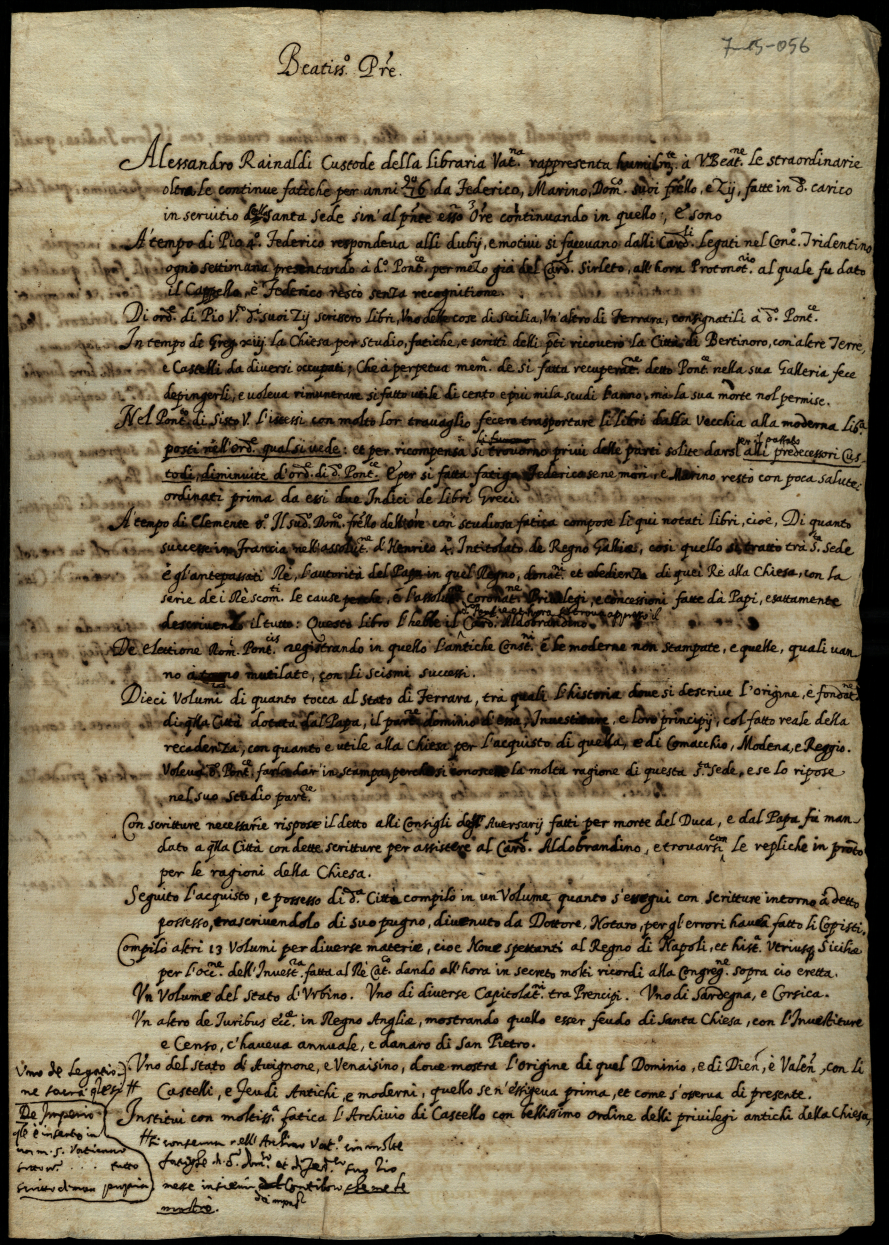 7-15-056
Beatiss.º Pre.
Alessandro Rainaldi Custode della libraria Vat.na rappresenta humilm.te à V. Beat.ne le straordinarie
oltra le continue fatiche per anni 76 da Federico, Marino, Dom.co suoi frello, e Zij, fatte in d.º carico
in servitio della Santa Sede sin' al pnte esso Ore continuando in quello, e sono
A' tempo di Pio 4.º Federico respondeva alli dubij, e motivi si facevano dalli Card.li Legati nel Conc.º Tridentino
ogni settimana presentando à d.º Pont.ce per mezo già del Card.l Sirleto, all'hora Protonot.rio al quale fu dato
il Cappello, e Federico restò senza recognitione.
Di ord.e di Pio V.º d.i suoi Zij scrissero libri, Uno delle cose di Sicilia, Un'altro di Ferrara, consignatili à d.º Pont.ce
In tempo de Greg.º xiij la Chiesa per studio, fatiche, e scritti delli pti ricoverò la Città di Bertinoro, con altre Terre,
e Castelli da diversi occupati; Che à perpetua mem.a de si fatta recuperat.ne detto Pont.ce nella sua Galleria fece
depingerli, e voleva rimunerare si fatto utile di cento e più mila scudi l'anno, mà la sua morte nol permise.
Nel Pont.to di Sisto V. l'istessi con molto lor travaglio fecero trasportare li libri dalla Vecchia alla moderna Lib.a
posti nell'ord.e qual si vede: et per ricompensa si trovorno privi delle parti solite darsi per il passato alli predecessori Cus-
todi, diminuite d'ord.e di d.º Pont.ce E per si fatta fatiga Federico sene morì, e Marino restò con poca salute,
ordinati prima da essi due Indici de libri Greci.
A tempo di Clemente 8.º Il sud.º Dom.co frello dell'Ore con studiosa fatica compose li qui notati libri, cioè, Di quanto
successe in Francia nell'assolut.ne d'Henrico 4.º Intitolato de Regno Galliae, così quello si trattò trà S.ta Sede
e gl'antepassati Rè, l'autorità del Papa in quel Regno, donat.ni et obedienza di quei Rè alla Chiesa, con la
serie de i Rè scom.ti le cause perche, e l'assolut.ne Coronat.ne Privilegi, e concessioni fatte da Papi, esattamente
descrivendo il tutto: Questo libro l'hebbe il Card. Aldobrandino.
De Electione Rom.i Pont.cis registrando in quello l'antiche Const.ni e le moderne non stampate, e quelle, quali van-
no à torno mutilate, con li scismi successi.
Dieci Volumi di quanto tocca al stato di Ferrara, trà quali l'historia dove si descrive l'origine, e fondat.ne
di qlla Città dotata dal Papa, il dominio d'essa, Investiture, e loro principij, col fatto reale della
recadenza, con quanto è utile alla Chiesa per l'acquisto di quella, e di Comacchio, Modena, e Reggio.
Voleva d.º Pont.ce farlo dar in stampa, perche si conoscesse la molta ragione di questa S.ta Sede, e se lo ripose
nel suo studio part.re
Con scritture necessarie rispose il detto alli Consigli degl'Aversarij fatti per morte del Duca, e dal Papa fù man-
dato a qlla Città con dette scritture per assistere al Card.l Aldobrandino, e trovarsi con le repliche in pronto
per le ragioni della Chiesa.
Seguito l'acquisto, e possesso di d.ta Città compilò in un Volume quanto s'esseguì con scritture intorno à detto
possesso, trascrivendolo di suo pugno, divenuto da Dottore, Notaro, per gl'errori havea fatto li Copisti,
Compilò altri 13 Volumi per diverse materie, cioè Nove spettanti al Regno di Napoli, et hist.a Utriusq. Siciliae
per l'occ.ne dell'Invest.ra fatta al Rè Cat.co dando all'hora in secreto molti ricordi alla Congreg.ne sopra ciò eretta.
Un Volume del Stato d'Urbino. Uno di diverse Capitolat.ni tra Prencipi. Uno di Sardegna, e Corsica.
Un altro de Juribus Ecc.ae in Regno Angliae, mostrando quello esser feudo di Santa Chiesa, con l'Investiture
e Censo, c'haveva annuale, e danaro di San Pietro.
Uno del stato di Avignone, e Venaisino, dove mostra l'Origine di quel Dominio, e di Dien, e Valen, con li
Castelli, e feudi Antichi, e moderni, quello se n'essigeva prima, et come s'osserva di presente.
Instituì con moltiss.a fatica l'Archivio di Castello con bellissimo ordine delli privilegi antichi della Chiesa,
Uno de Legatio-
ne
De Imperio
qle è inserto in
un m. s. Vaticano
tutto
scritto di man propria
si conserva nell'Archivio Vat.º con molte
fatighe di d.º Dom.co et di Fed.co suo Zio
messe insieme che me le
mostrò.